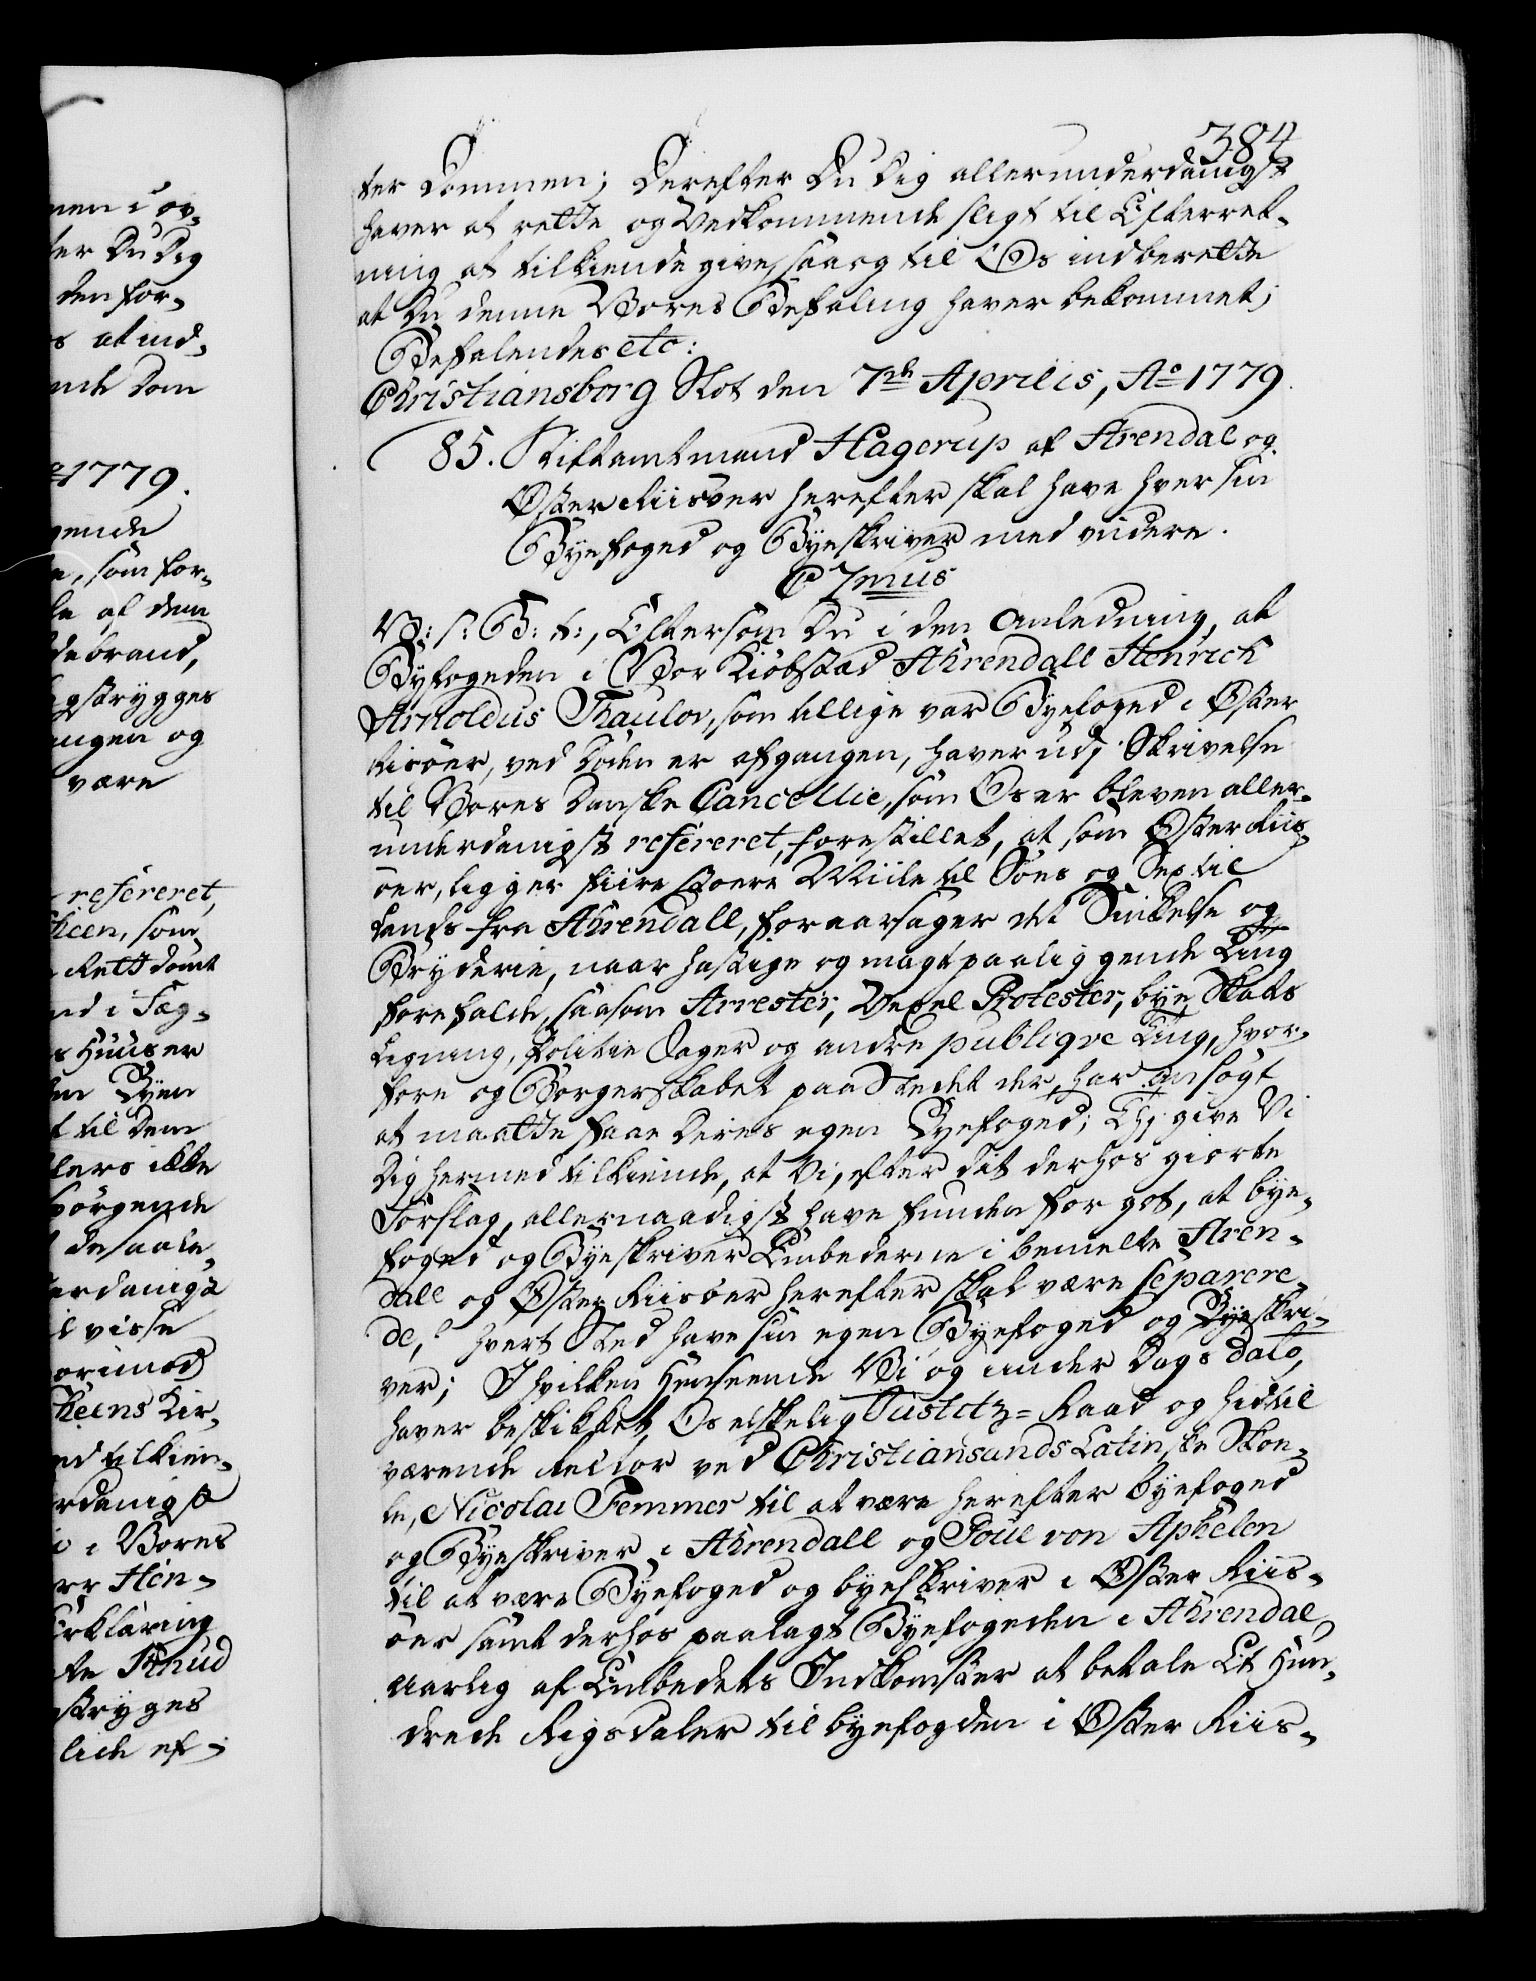 384
ter Dommen; Derefter Du Dig allerunderdanigst
haver at rette og Vedkommende sligt til Efterret-
ning at tilkiende give, saa og til Os indberette
at Du denne Vores Befaling haver bekommet;
Befalendes etc:
Christiansborg Slot den 7de Aprilis, Ao 1779.
85. Stiftamtmand Hagerup at Arendal og
Øster Riisøer herefter skal have hver sin
Byefoged og Byeskriver med videre.
C 7mus
V: s: G: t:, Eftersom Du i den Anledning, at
Byfogeden i Vor Kiøbstad Ahrendall Henrich
Arnoldus Thaulov, som tillige var Byefoged i Øster
Risøer, ved Døden er afgangen, haver udj Skrivelse
til Vores Danske Cancellie, som Os er bleven aller-
underdanigst refereret, forestillet, at, som Øster Riis-
øer, ligger fiire stoere Miile til Søes og Sex til
Lands fra Ahrendall, foraarsager det Sinkelse og
Bryderie, naar hastige og magtpaaliggende Ting
forefalde, saasom Arrester, Vexel Protester, bye Skats
Ligning, Politie Sager og andre publiqve Ting, hvor-
fore og Borgerskabet paa Stedet der, har ansøgt
at maatte faae Deres egen Byefoged; Thj give Vi
Dig hermed tilkiende, at Vi, efter dit derhos giorte
Forslag, allernaadigst have funden for got, at bye-
foged og Byeskriver Embederne i bemelte Aren-
dall og Øster Riisøer herefter skal være separere-
de, hvert Sted have sin egen Byefoged og Byeskri-
ver; I hvilken Henseende Vi og under Dags dato,
haver beskikket, Os elskelig Justitz=Raad og hidtil
værende Rector ved Christiansunds Latinske Skoe-
le, Nicolai Femmer til at være herefter byefoged
og Byeskriver i Ahrendall og Poul von Aphelen
til at være Byefoged og byeskriver i Øster Riis-
øer samt derhos paalagt Byefogeden i Ahrendal,
Aarlig af Embedets Indkomster at betale Et Hun-
drede Rigsdaler til byefogden i Øster Riis-